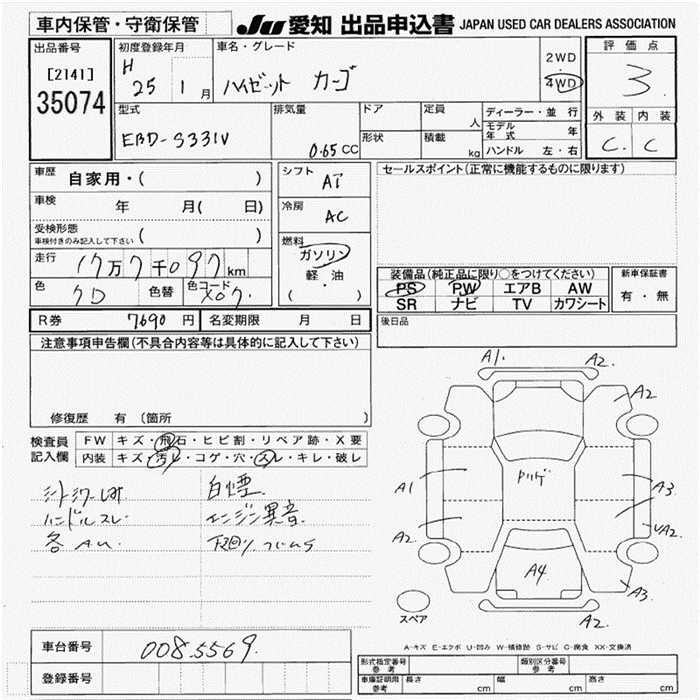 車内保管・守衛保管
JU 愛知 出品申込書 JAPAN USED CAR DEALERS ASSOCIATION
出品番号
[2141]
35074
初度登録年月
H 25 1 月
車名・グレード
ハイゼット カーゴ
2WD
4WD
評価点
3
外装 内装
C C
型式
EBD-S331V
排気量
0.65 CC
ドア
形状
定員
人
積載
kg
ディーラー・並行
モデル年式 年
ハンドル 左・右
車歴
自家用・( )
車検
年 月( 日)
受検形態
車検付きのみ記入して下さい ( )
走行
17万7千097km
色
色替
色コード
シフト
AT
冷房
AC
燃料
ガソリン
軽・油
( ・ )
セールスポイント(正常に機能するものに限ります)
装備品(純正品に限り○をつけてください)
PS PW エアB AW
SR ナビ TV カワシート
新車保証書
有・無
後日品
R券 7690 円 名変期限 月 日
注意事項申告欄(不具合内容等は具体的に記入して下さい)
修復歴 有 (箇所 )
検査員
記入欄
FW キズ・飛石・ヒビ割・リペア跡・X要
内装 キズ・汚レ・コゲ・穴・スレ・キレ・破レ
白煙
ハンドルスレ エンジン異音
A1. A2.
A2
A1 A3
A2. A2
A4 A3
A2.
スペア
A-キズ E-エクボ U-凹み W-補修跡 S-サビ C-腐食 XX-交換済
車台番号 0085569
登録番号
形式指定番号 参考
類別区分番号 参考
車庫証明用 参考 長さ cm 幅 cm 高さ cm